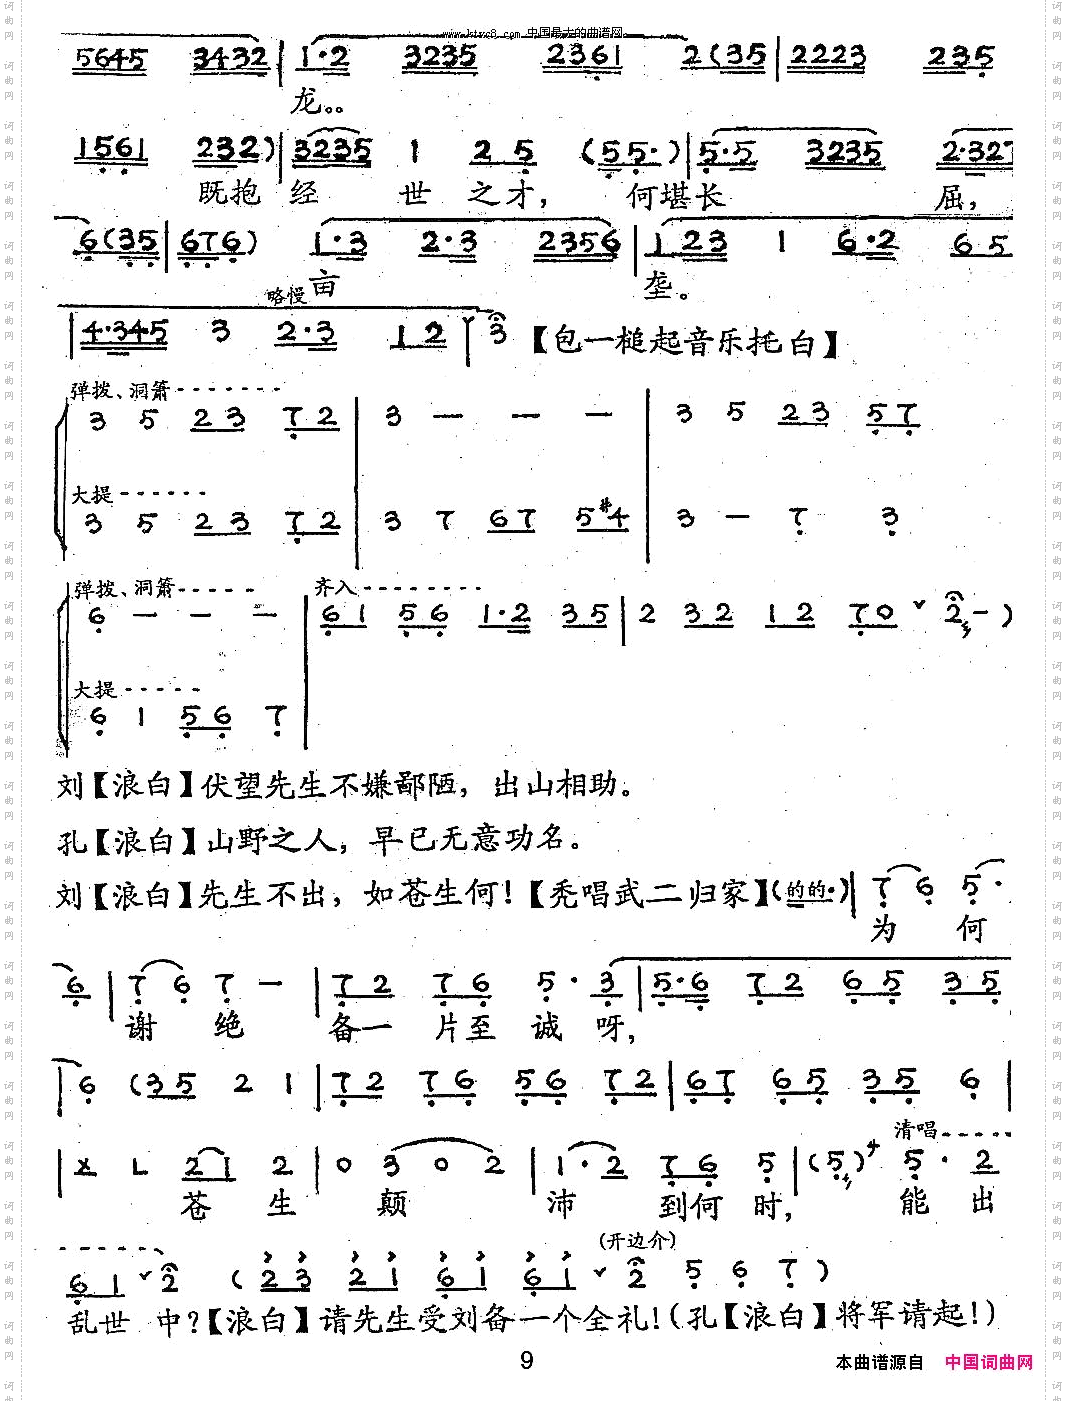 www.ktvc8.com 中国最大的曲谱网
5645 3432 | 1·2 3235 2361 2(35 | 2223 235
龙。。
1561 232) | 3235 1 2 5 (55·) | 5·5 3235 2·327
既抱经 世 之才, 何堪长 屈,
6(35 | 676) 1·3 2·3 2356 | 123 1 6·2 65
亩 垄。
略慢
4·345 3 2·3 12 3 【包一槌起音乐托白】
弹拨、洞箫------
3 5 23 72 | 3 — — — | 3 5 23 57
大提------
3 5 23 72 | 3 7 67 5#4 | 3 — 7 3
弹拨、洞箫----- 齐入--------
6 — — — | 61 56 1·2 35 | 2 32 12 70 2—)
大提-----
6 1 56 7
刘【浪白】伏望先生不嫌鄙陋，出山相助。
孔【浪白】山野之人，早已无意功名。
刘【浪白】先生不出，如苍生何！【秃唱武二归家】(的的·) | 7 6 5·
为 何
6 | 7 6 7 — | 72 76 5·3 | 5·6 72 65 35
谢 绝 备一 片至 诚 呀，
6 (35 2 1 | 72 76 56 72 | 67 65 35 6 |
清唱-----
X L 21 2 | 0 3 0 2 | 1·2 76 5 | (5) 5·2
苍 生 颠 沛 到何 时， 能 出
(开边介)
61 2 (23 21 61 61 2 5 6 7)
乱世 中？【浪白】请先生受刘备一个全礼！（孔【浪白】将军请起！）
9
本曲谱源自 中国词曲网